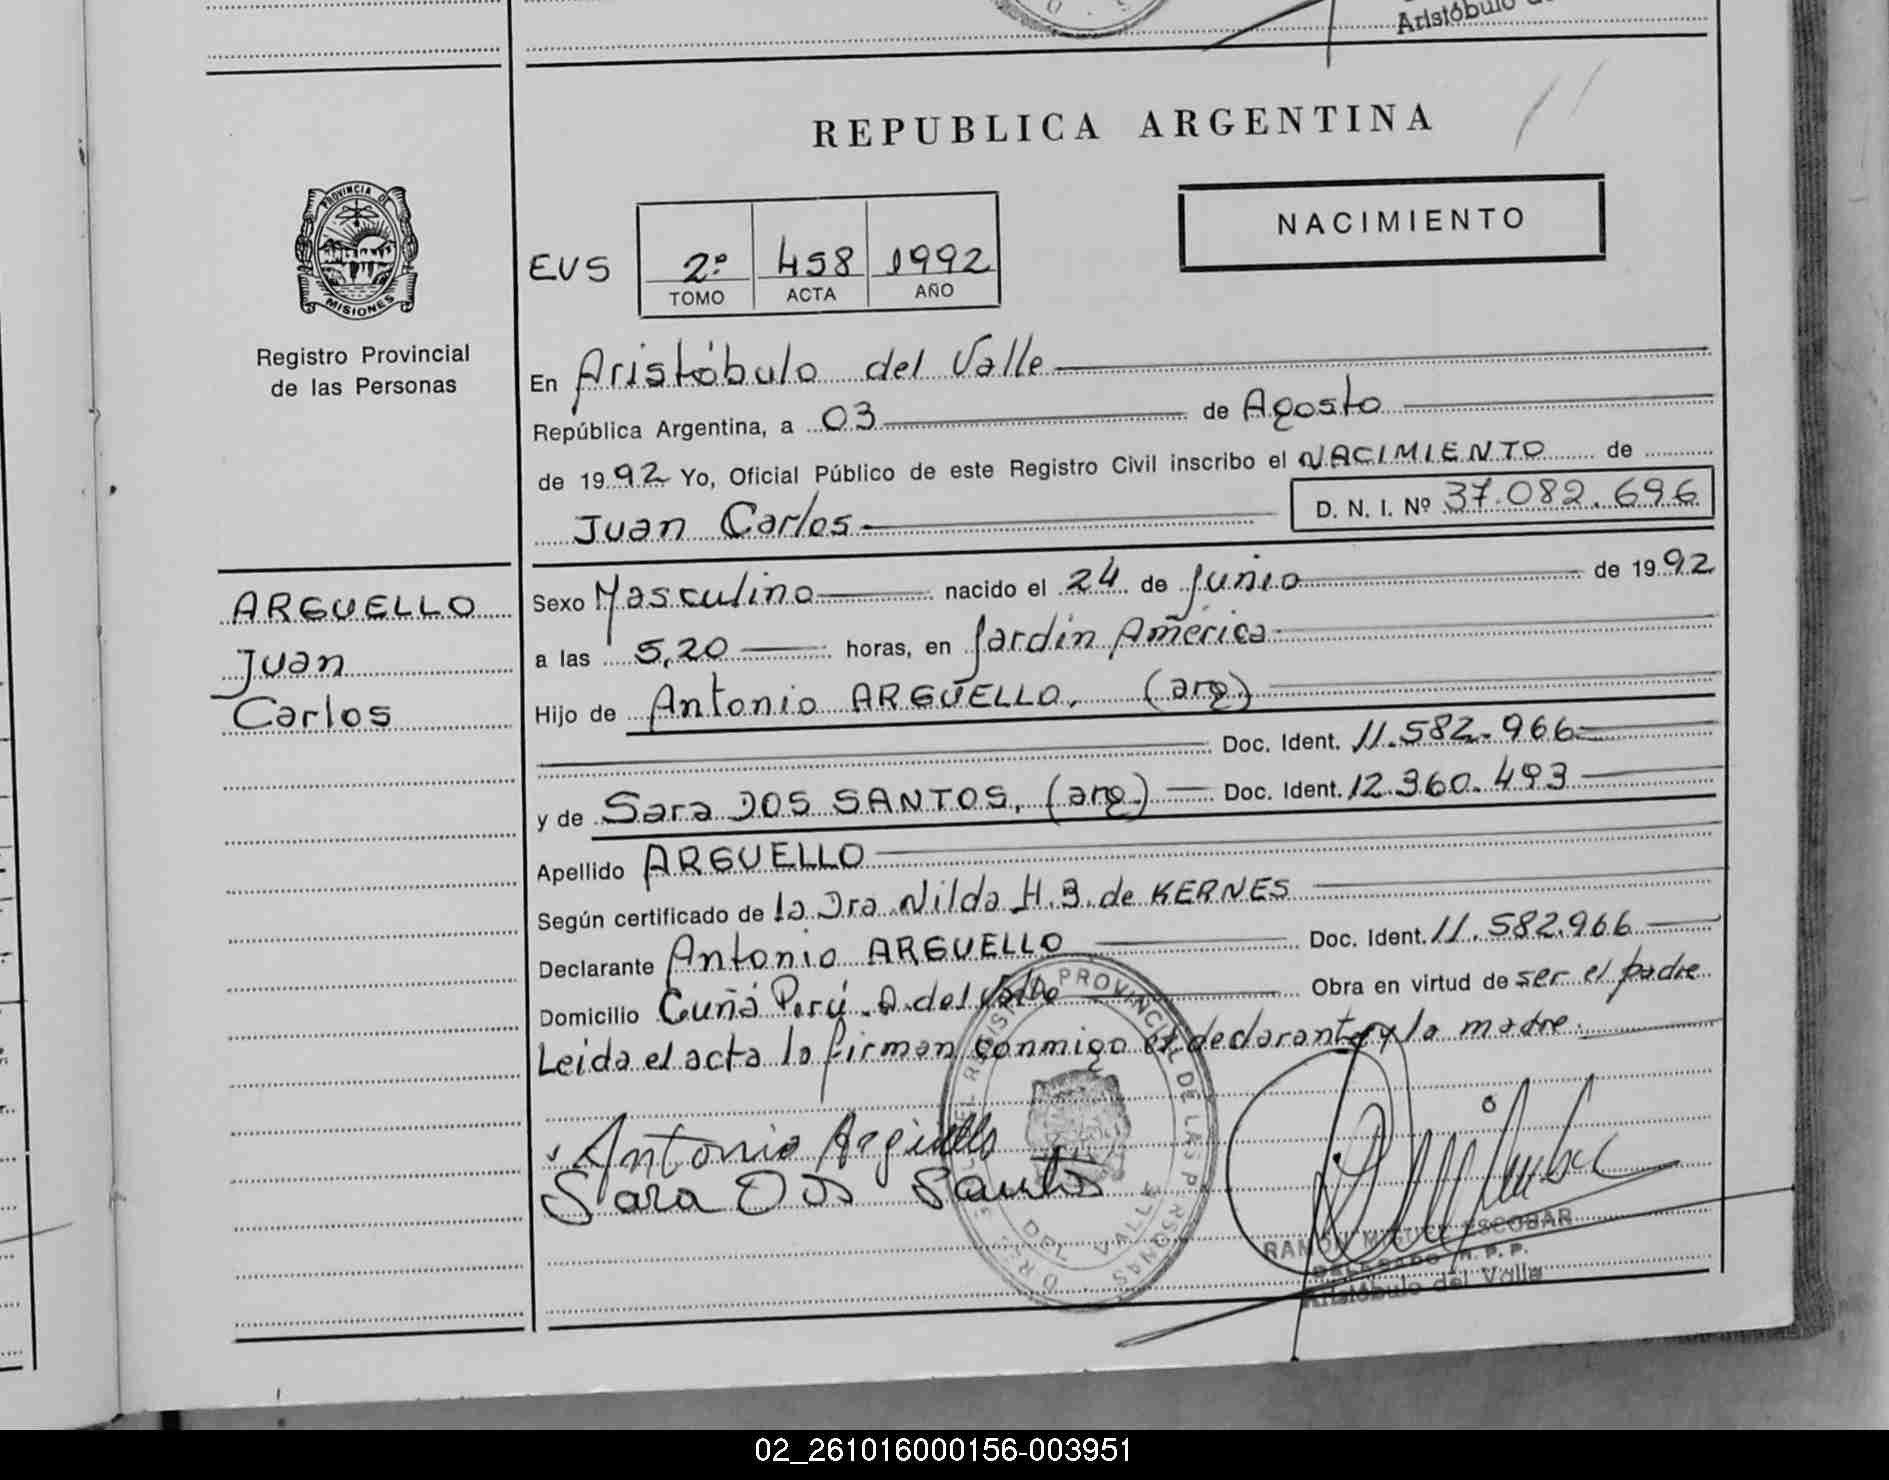 Aristóbulo
REPUBLICA ARGENTINA
PROVINCIA DE
MISIONES
Registro Provincial
de las Personas
NACIMIENTO
EVS 2º 458 1992
TOMO ACTA AÑO
En Aristóbulo del Valle
República Argentina, a 03 de Agosto
de 1992 Yo, Oficial Público de este Registro Civil inscribo el NACIMIENTO de
Juan Carlos D. N. I. Nº 37.082.696
ARGUELLO
Juan
Carlos
Sexo Masculino nacido el 24 de Junio de 1992
a las 5,20 horas, en Jardín América
Hijo de Antonio ARGÜELLO, (arg)
Doc. Ident. 11.582.966
y de Sara DOS SANTOS, (arg.) Doc. Ident. 12.360.493
Apellido ARGUELLO
Según certificado de la Dra Nilda H.B. de KERNES
Declarante Antonio ARGUELLO Doc. Ident. 11.582.966
Domicilio Cuñá Perú. A. del Valle Obra en virtud de ser el padre
Leida el acta la firman conmigo el declarante y la madre.
Antonio Arguello
Sara Dos Santos
PROVINCIAL DE LAS PERSONAS
DEL VALLE
RAMON ESCOBAR
DELEGADO R. P. P.
Aristóbulo del Valle
02_261016000156-003951